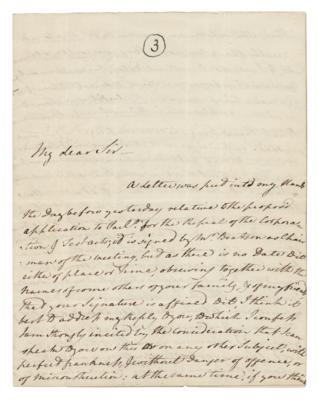 3
My dear Sir
A Letter was put into my Hands
the day before yesterday relative to the propos'd
application to Parlt. for the Repeal of the Corpora-
tion & Test acts, it is signed by Mr. Beatson as Chair-
man of the meeting, but as there is no Date to it
either of place or time observing together with the
Names of some others of your family, & of my friends
that your Signature is affixed to it: I think it
best to address my Reply to you, to which I confess
I am strongly incited by the Consideration that I can
speak to you on this or on any other Subject, with
perfect frankness, & without danger of offence, or
of misconstruction: at the same time, if you think